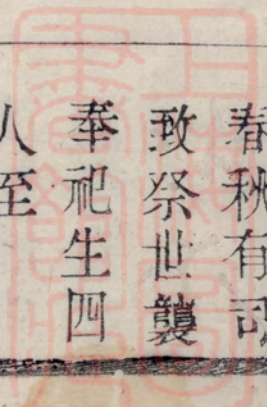 春秋有司
致祭世襲
奉祀生四
人至